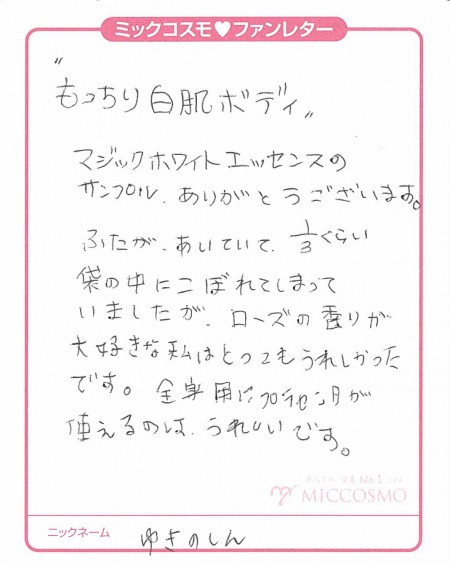 ミックコスモ♥ファンレター
〃
もっちり白肌ボディ〃
マジックホワイトエッセンスの
サンプル、ありがとうございます。
ふたが、あいていて、1/3ぐらい
袋の中にこぼれてしまって
いましたが、ローズの香りが
大好きな私はとってもうれしかった
です。全身用にプラセンタが
使えるのは、うれしいです。
No.1
MICCOSMO
ニックネーム ゆきのしん